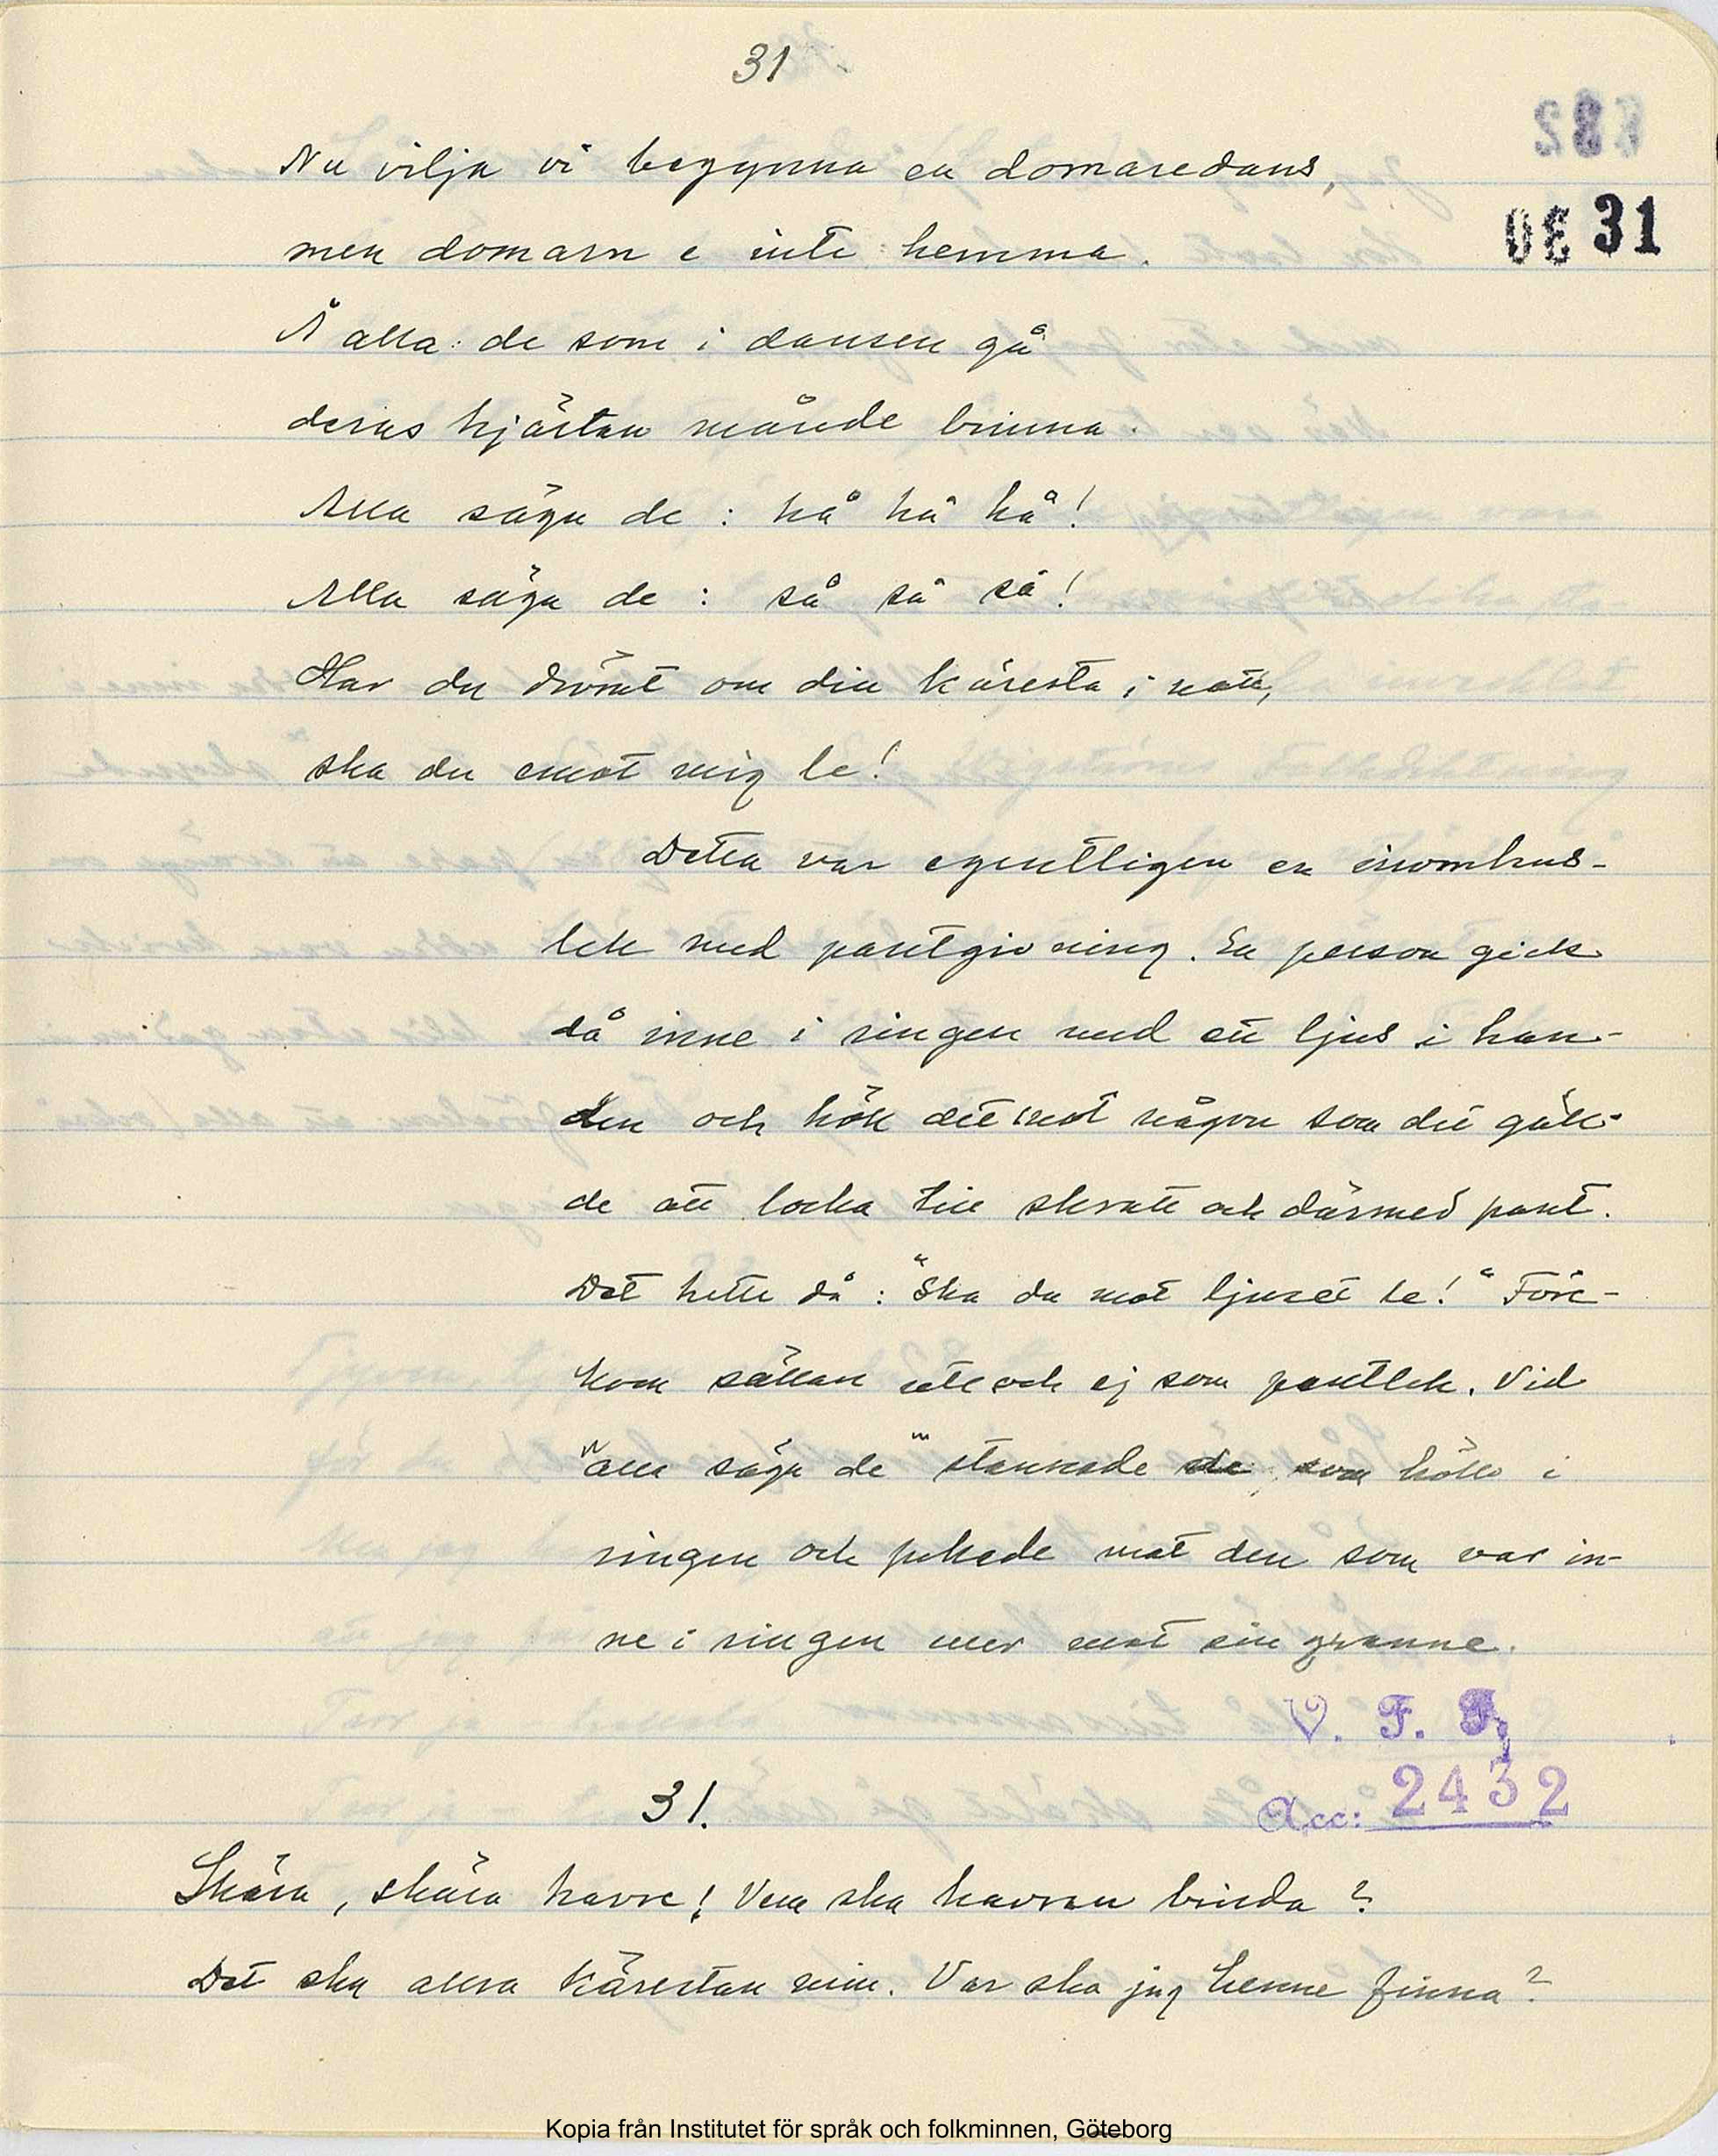 31
31
Nu vilja vi begynna en domaredans,
men domarn e inte hemma.
Å alla de som i dansen gå
deras hjärtan månde brinna.
Alla säga de : hå hå hå!
Alla säga de : så så så!
Har du drömt om din käresta i natt,
ska du emot mig le!
Detta var egentligen en inomhus-
lek med pantgivning. En person gick
då inne i ringen med ett ljus i han-
den och höll det mot någon som det gäll-
de att locka till skratt och därmed pant.
Det hette då : "Ska du mot ljuset le!" Före-
kom sällan ute och ej som pantlek. Vid
"alla säga de" stannade de som höllo i
ringen och pekade mot den som var in-
ne i ringen eller mot sin granne.
V. F. F.
Acc: 2432
31.
Skära, skära havre! Vem ska havren binda?
Det ska allra kärestan min. Var ska jag henne finna?
Kopia från Institutet för språk och folkminnen, Göteborg